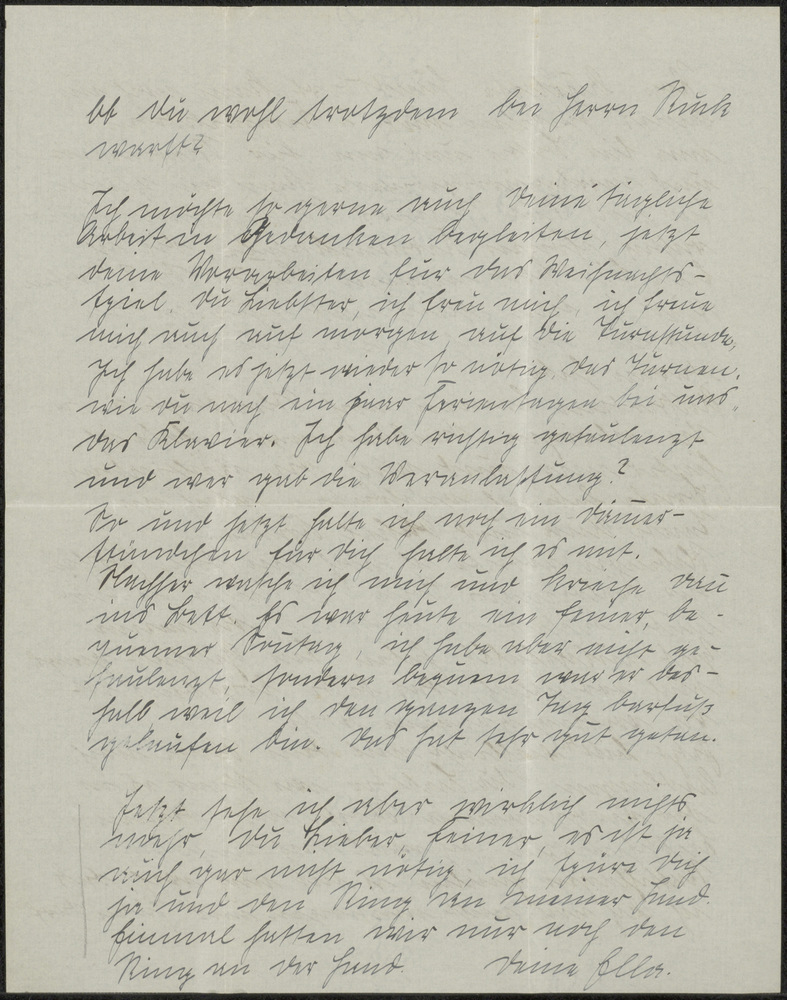 Ob du wohl trotzdem bei Herrn Ruck
warst?
Ich möchte so gerne auch Deine tägliche
Arbeit in Gedanken begleiten, jetzt
deine Vorarbeiten für das Weihnachts-
spiel. Du Liebster, ich freu mich, ich freue
mich auch auf morgen auf die Turnstunde,
Ich habe es jetzt wieder so nötig, das Turnen,
wie du nach ein paar Ferientagen bei uns
das Klavier. Ich habe richtig gefaulenzt
und wer gab die Veranlassung?
So und jetzt halte ich noch ein Dämer-
stündchen für dich halte ich es mit.
Nachher wasche ich mich und krieche dan
ins Bett. Es war heute ein feiner, be-
quemer Sontag, ich habe aber nicht ge-
faulenzt, sondern bequem war er des-
halb weil ich den ganzen Tag barfuß
gelaufen bin. Das hat sehr gut getan.
Jetzt sehe ich aber wirklich nichts
mehr, Du Lieber, Feiner, es ist ja
auch gar nicht nötig, ich spüre Dich
ja und den Ring an meiner Hand.
Einmal hatten wir nur noch den
Ring an der Hand. Deine Ella.